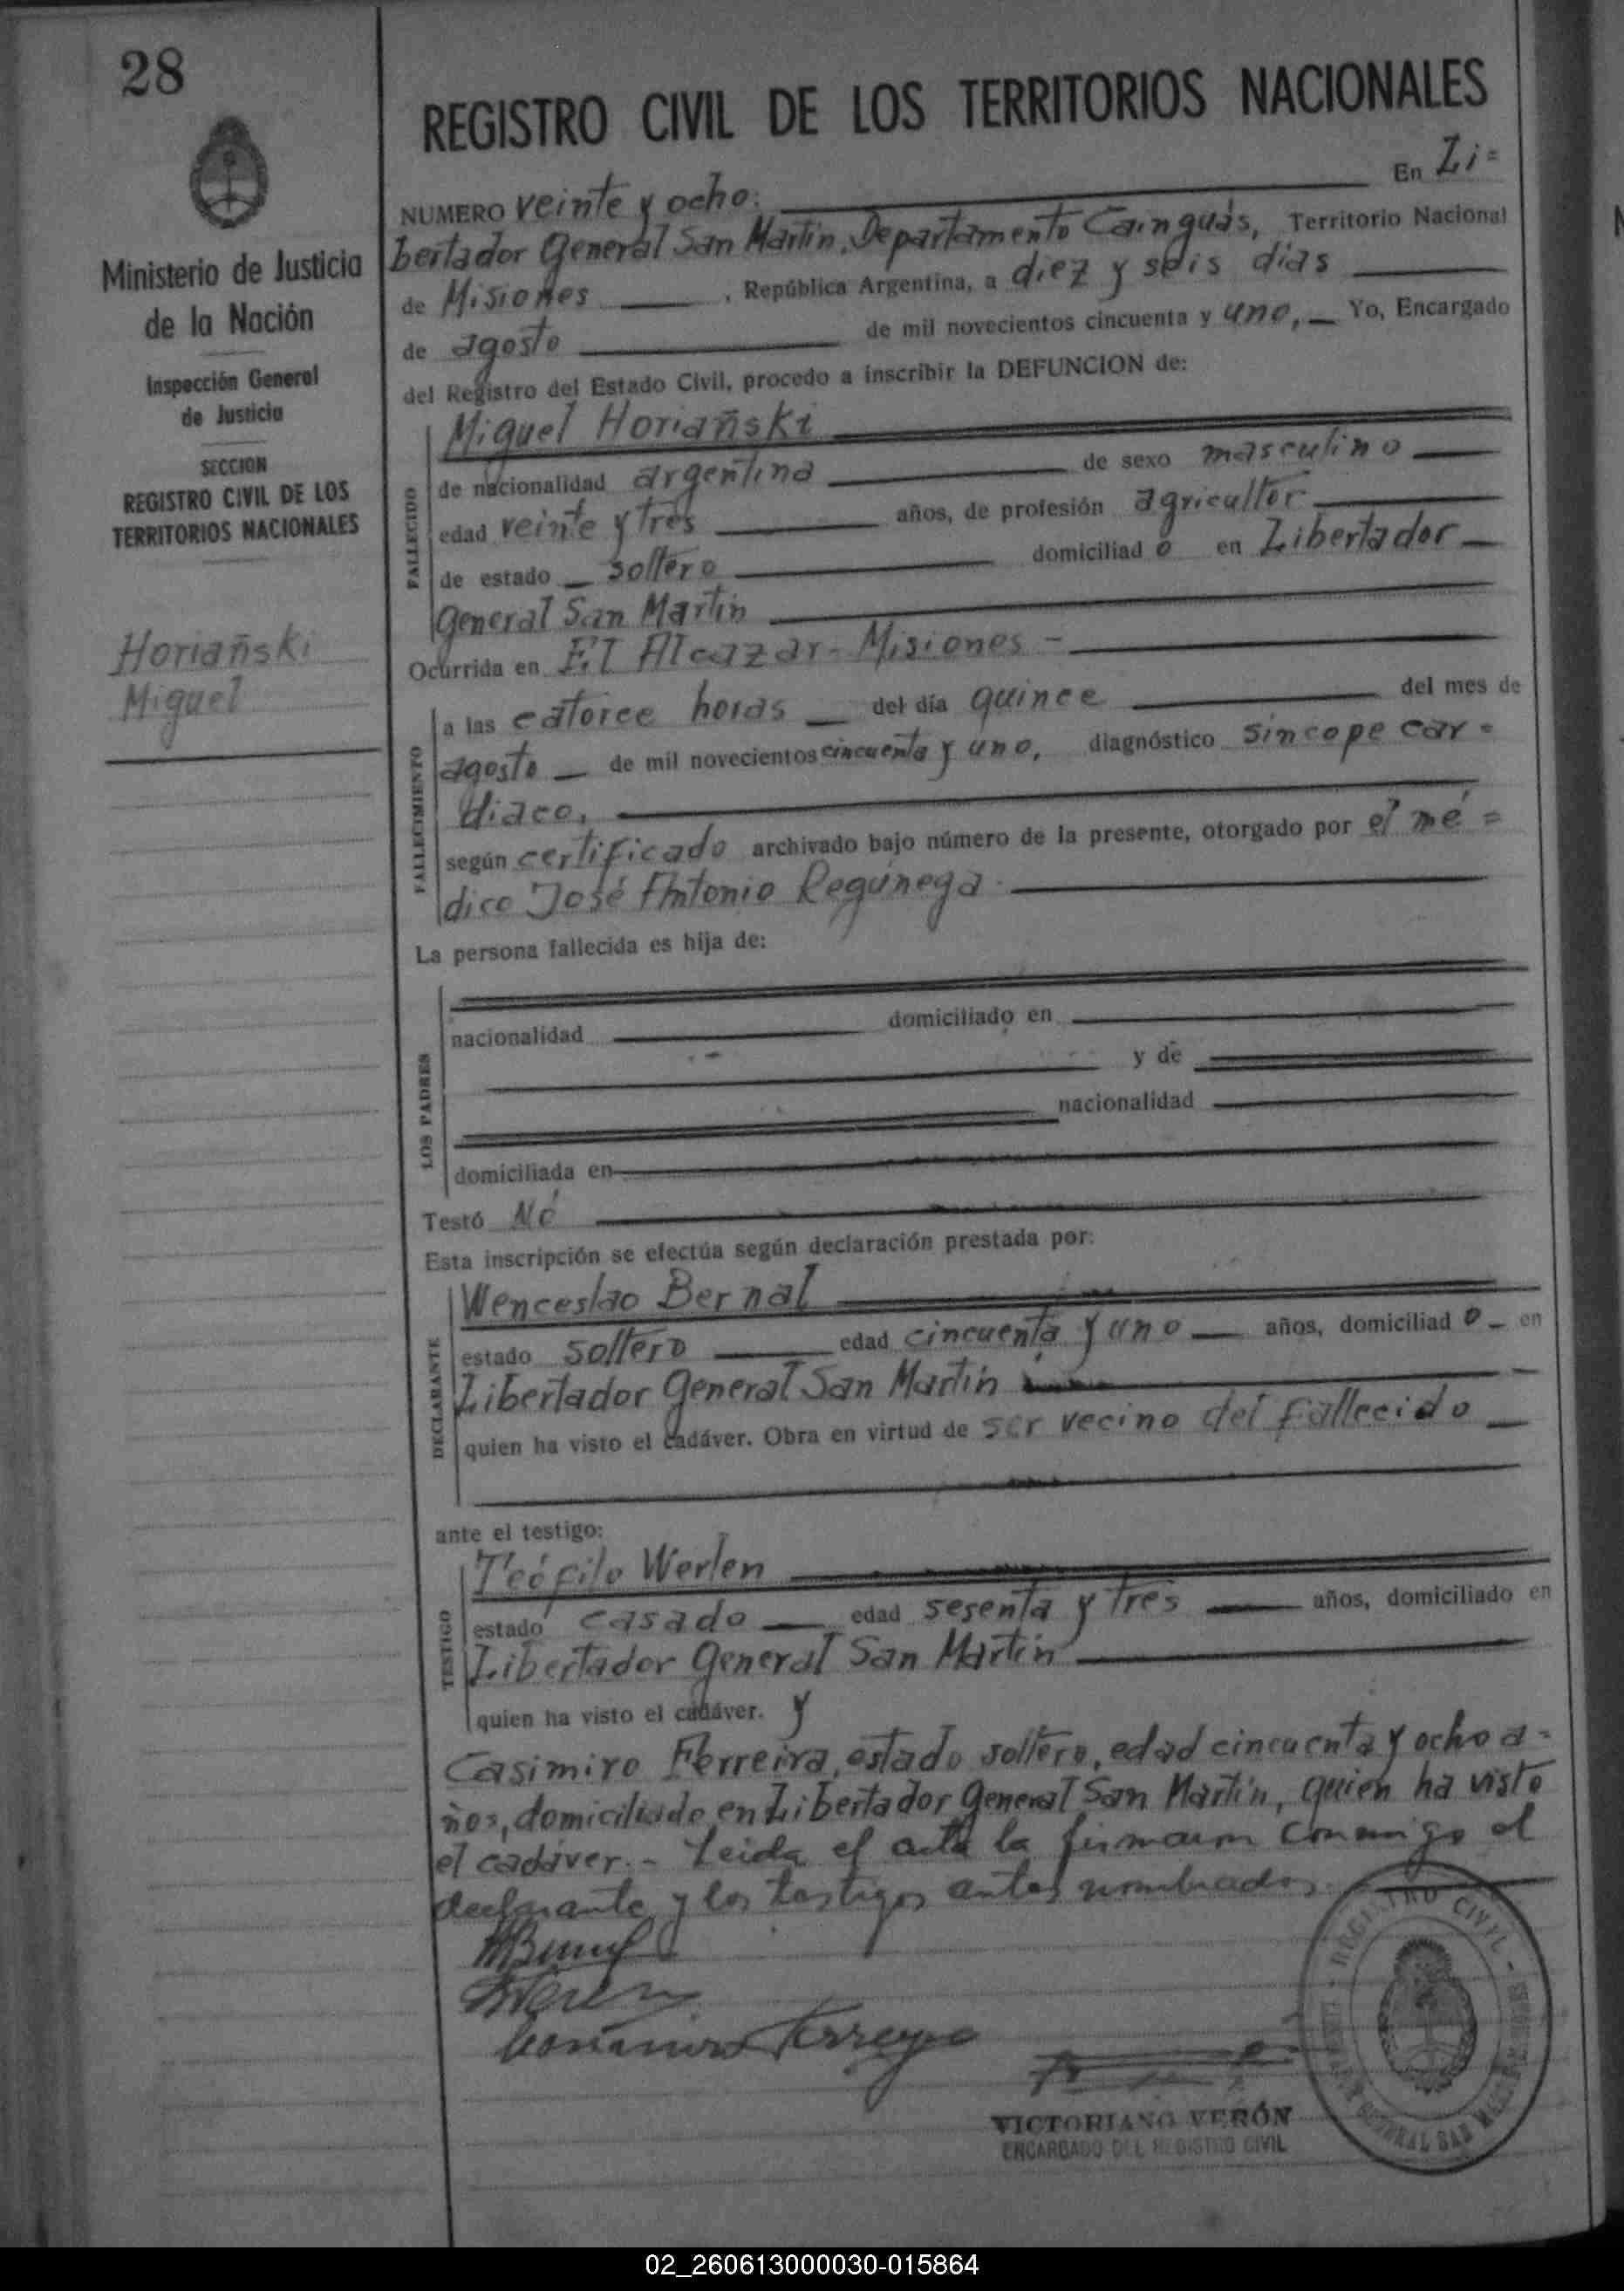 28
REGISTRO CIVIL DE LOS TERRITORIOS NACIONALES
Ministerio de Justicia
de la Nación
Inspección General
de Justicia
SECCION
REGISTRO CIVIL DE LOS
TERRITORIOS NACIONALES
Horiañski
Miguel
NUMERO veinte y ocho: En Li=
bertador General San Martín, Departamento Cainguás, Territorio Nacional
de Misiones , República Argentina, a diez y seis días
de agosto de mil novecientos cincuenta y uno, Yo, Encargado
del Registro del Estado Civil, procedo a inscribir la DEFUNCION de:
FALLECIDO
Miguel Horiañski
de nacionalidad argentina de sexo masculino
edad veinte y tres años, de profesión agricultor
de estado soltero domiciliad o en Libertador
General San Martín
Ocurrida en El Alcazar - Misiones -
FALLECIMIENTO
a las catorce horas del día quince del mes de
agosto de mil novecientos cincuenta y uno, diagnóstico síncope car=
díaco,
según certificado archivado bajo número de la presente, otorgado por el mé=
dico José Antonio Regúnega
La persona fallecida es hija de:
LOS PADRES
nacionalidad domiciliado en
y de
nacionalidad
domiciliada en
Testó Nó
Esta inscripción se efectúa según declaración prestada por:
DECLARANTE
Wenceslao Bernal
estado soltero edad cincuenta y uno años, domiciliad o en
Libertador General San Martín
quien ha visto el cadáver. Obra en virtud de ser vecino del fallecido
ante el testigo:
TESTIGO
Teófilo Werlen
estado casado edad sesenta y tres años, domiciliado en
Libertador General San Martín
quien ha visto el cadáver. y
Casimiro Ferreira, estado soltero, edad cincuenta y ocho a=
ños, domiciliado en Libertador General San Martín, quien ha visto
el cadáver.- Leida el acta la firmaron conmigo el
declarante y los testigos antes nombrados.
VICTORIANO VERÓN
ENCARGADO DEL REGISTRO CIVIL
REGISTRO CIVIL
GENERAL SAN MARTIN
02_260613000030-015864